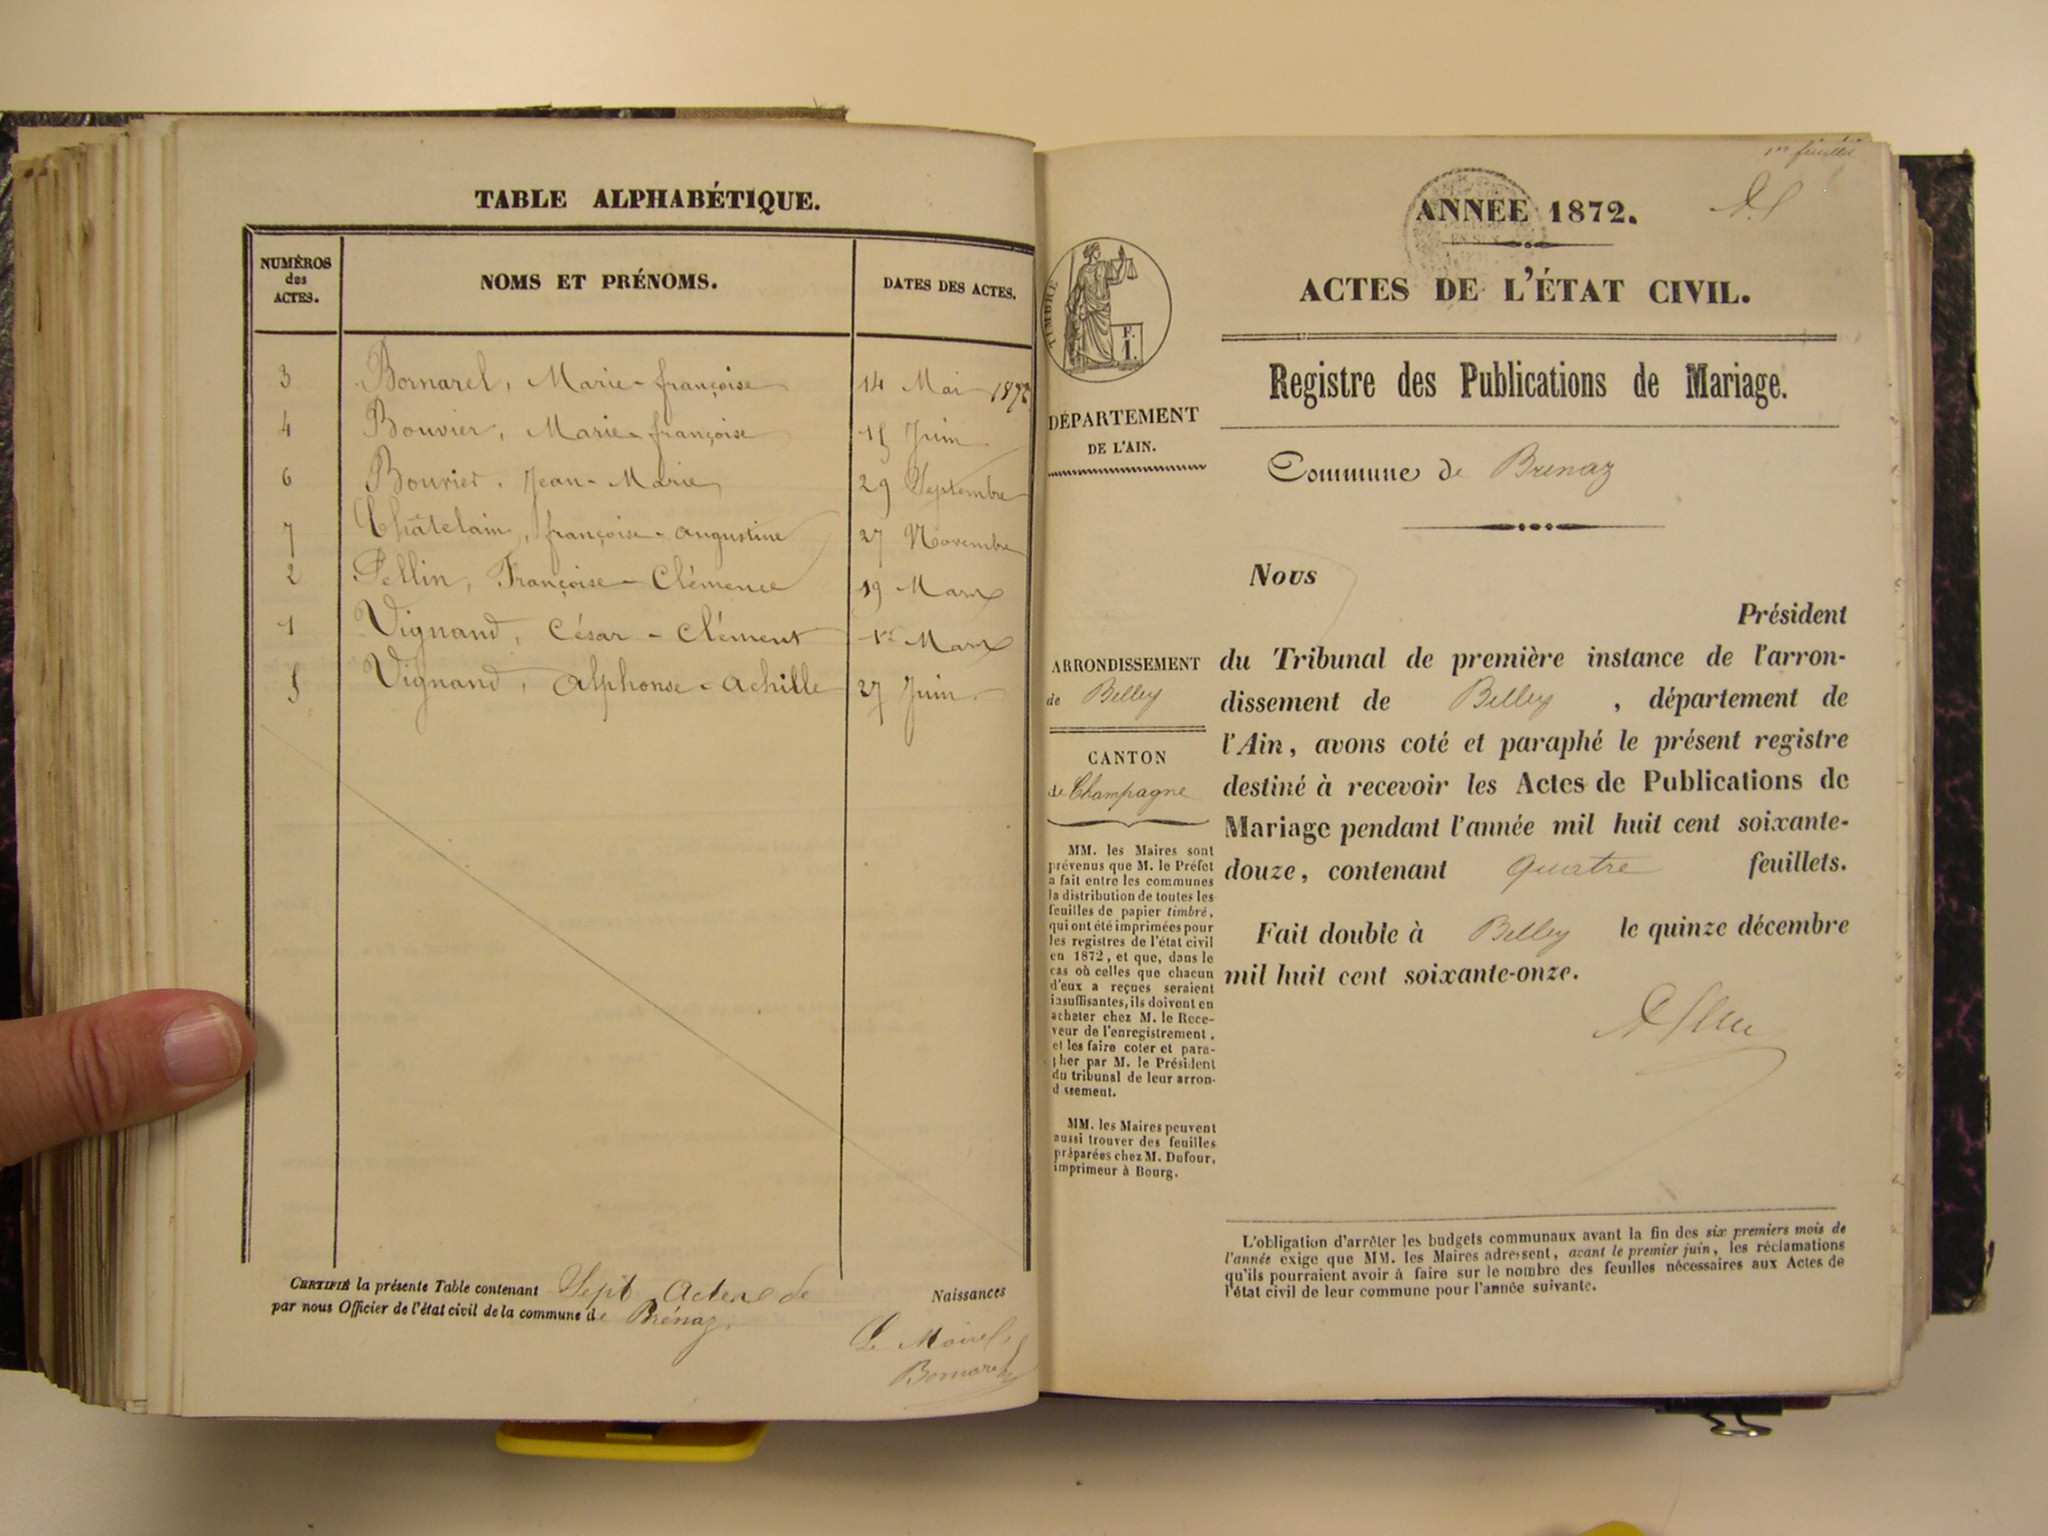 TABLE ALPHABÉTIQUE.
NUMÉROS
des
ACTES.
NOMS ET PRÉNOMS.
DATES DES ACTES.
3 Bornarel, Marie-françoise 14 Mai 1872
4 Bouvier, Marie-françoise 15 Juin
6 Bouvier, Jean-Marie 29 Septembre
7 Châtelain, françoise-augustine 27 Novembre
2 Pellin, Françoise-Clémence 19 Mars
1 Vignand, César-Clément 1er Mars
5 Vignand, Alphonse-Achille 27 Juin
CERTIFIÉ la présente Table contenant Sept Actes de Naissances
par nous Officier de l'état civil de la commune de Brénaz.
Le Maire
Bornarel
1er feuillet
ANNÉE 1872.
ACTES DE L'ÉTAT CIVIL.
TIMBRE
F.
1.
Registre des Publications de Mariage.
DÉPARTEMENT
DE L'AIN.
Commune de Brenaz
Nous
Président
du Tribunal de première instance de l'arron-
dissement de Belley, département de
l'Ain, avons coté et paraphé le présent registre
destiné à recevoir les Actes de Publications de
Mariage pendant l'année mil huit cent soixante-
douze, contenant quatre feuillets.
Fait double à Belley le quinze décembre
mil huit cent soixante-onze.
ARRONDISSEMENT
de Belley
CANTON
de Champagne
MM. les Maires sont
prévenus que M. le Préfet
a fait entre les communes
la distribution de toutes les
feuilles de papier timbré,
qui ont été imprimées pour
les registres de l'état civil
en 1872, et que, dans le
cas où celles que chacun
d'eux a reçues seraient
insuffisantes, ils doivent en
acheter chez M. le Rece-
veur de l'enregistrement,
et les faire coter et para-
pher par M. le Président
du tribunal de leur arron-
dissement.
MM. les Maires peuvent
aussi trouver des feuilles
préparées chez M. Dufour,
imprimeur à Bourg.
L'obligation d'arrêter les budgets communaux avant la fin des six premiers mois de
l'année exige que MM. les Maires adressent, avant le premier juin, les réclamations
qu'ils pourraient avoir à faire sur le nombre des feuilles nécessaires aux Actes de
l'état civil de leur commune pour l'année suivante.